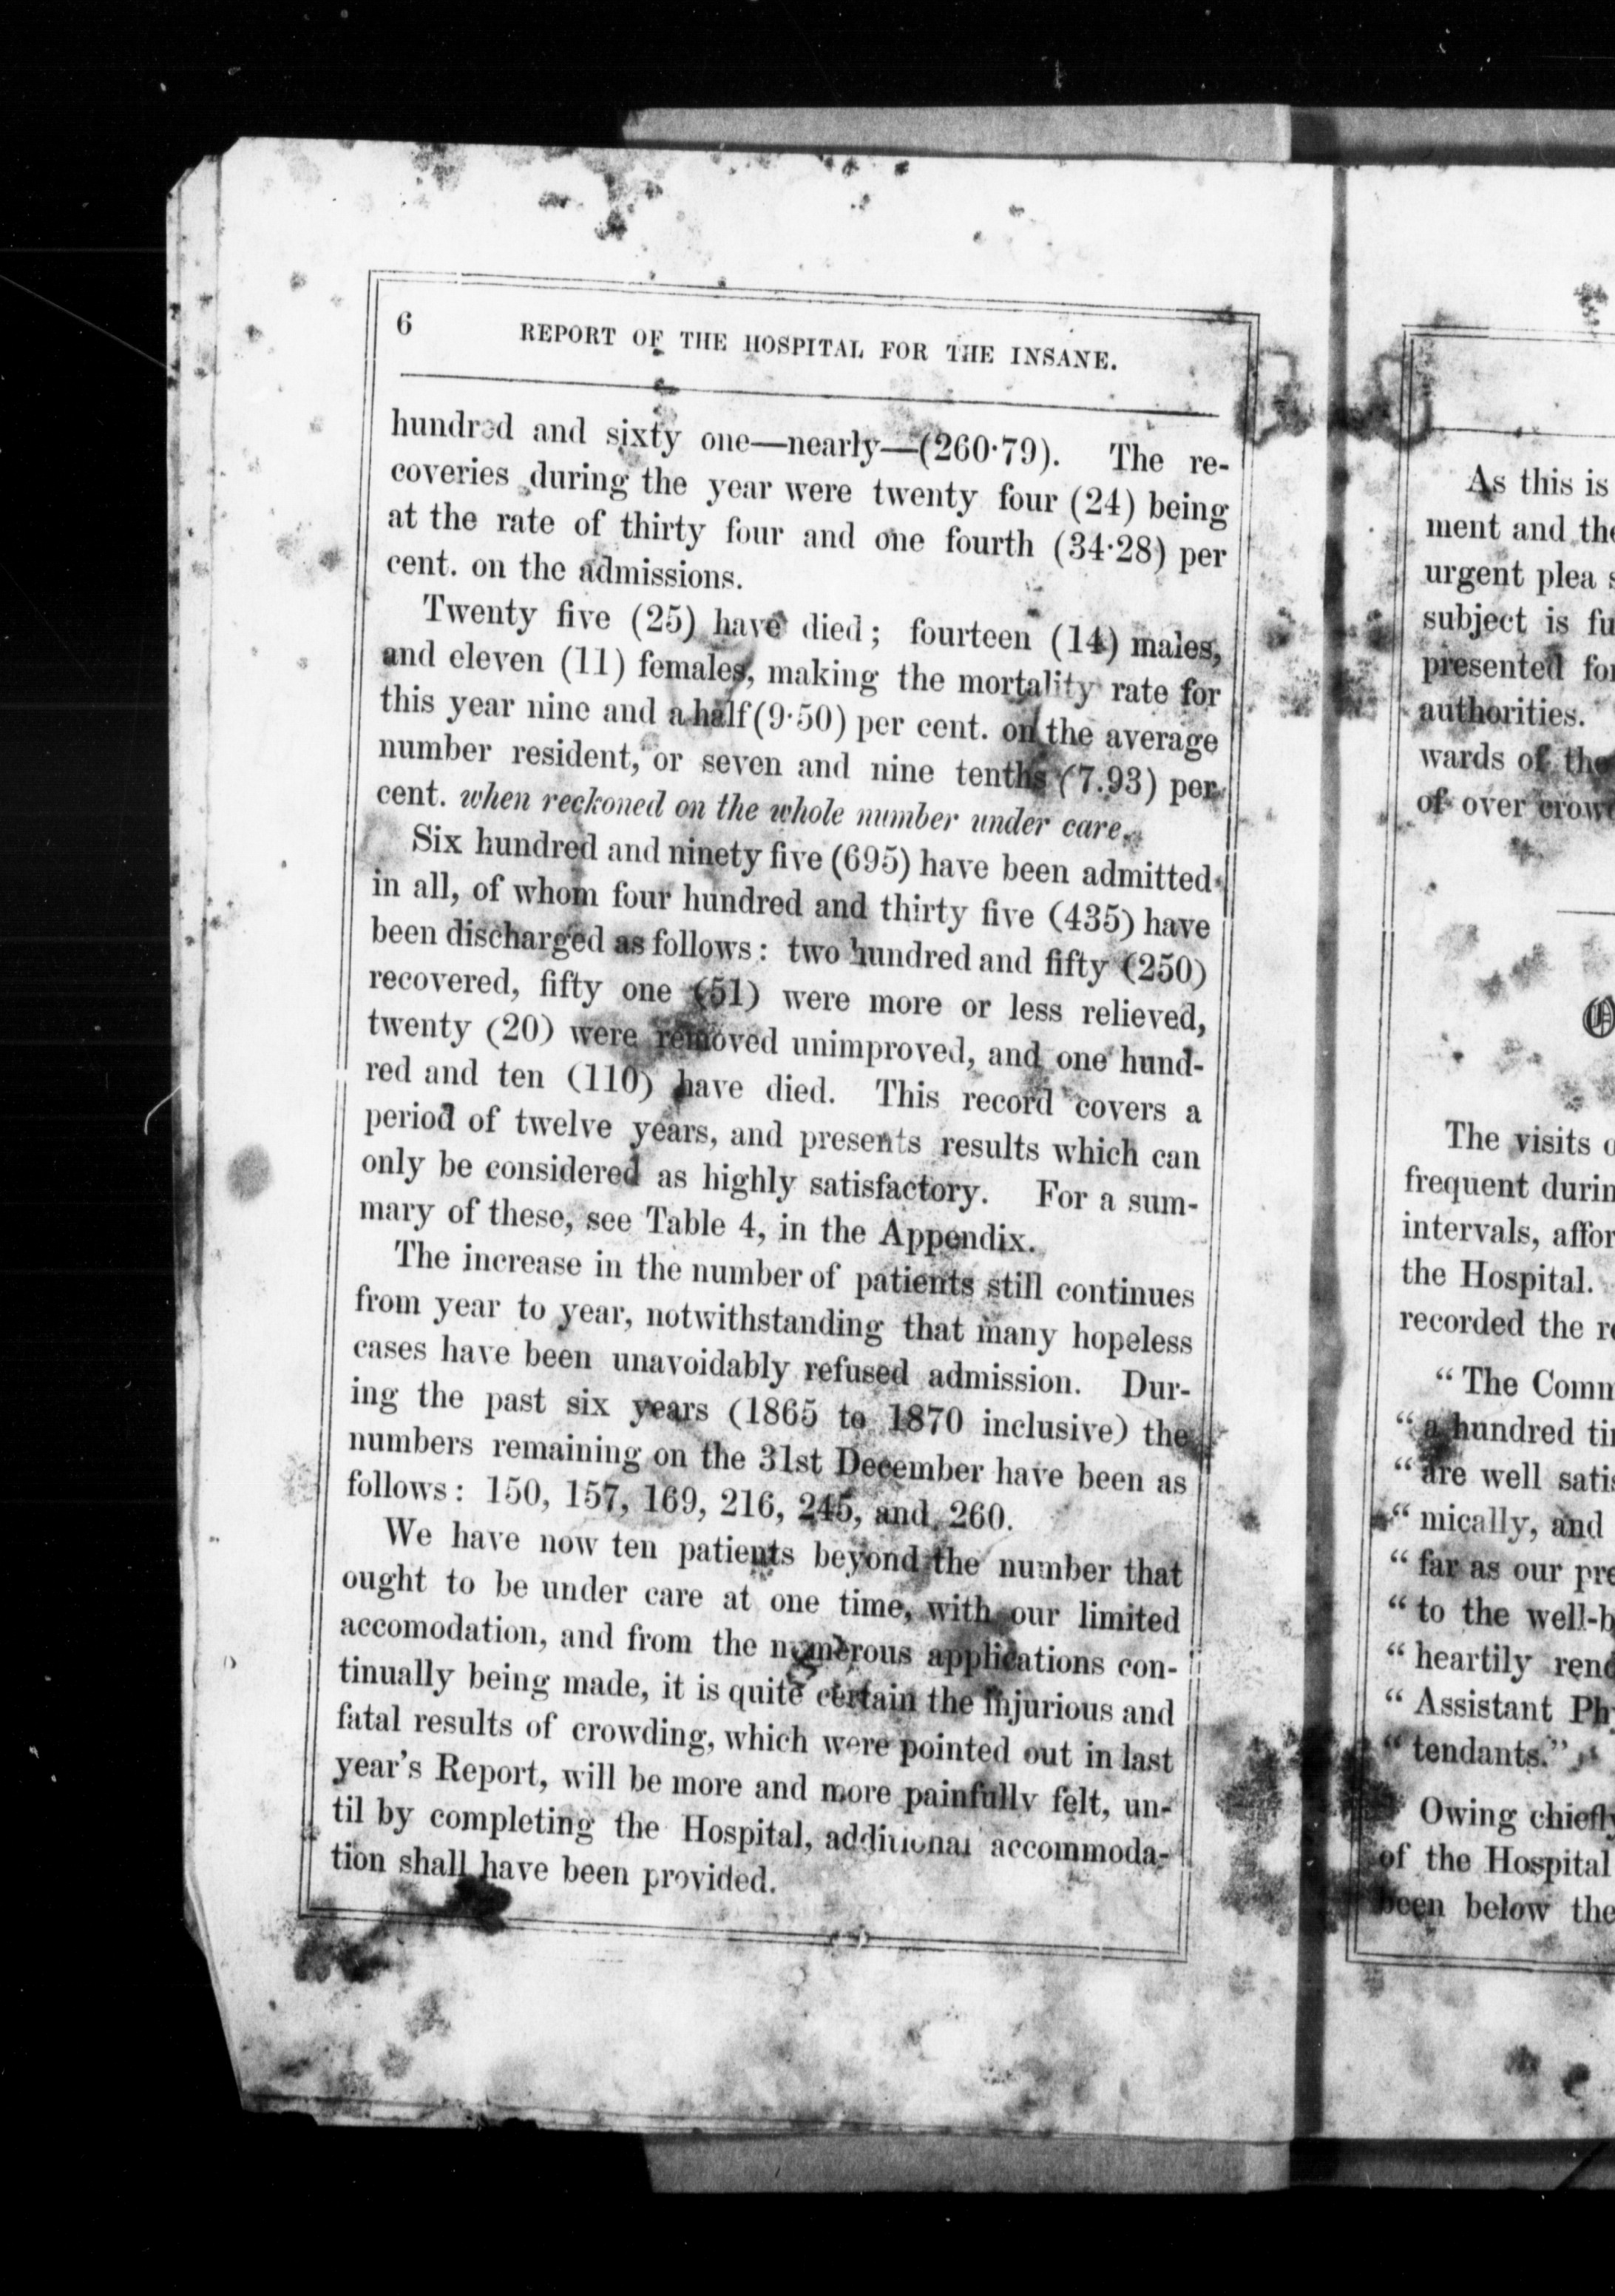 6 REPORT OF THE HOSPITAL FOR THE INSANE.
hundred and sixty one—nearly—(260·79). The re-
coveries during the year were twenty four (24) being
at the rate of thirty four and one fourth (34·28) per
cent. on the admissions.
Twenty five (25) have died; fourteen (14) males,
and eleven (11) females, making the mortality rate for
this year nine and a half (9·50) per cent. on the average
number resident, or seven and nine tenths (7.93) per
cent. when reckoned on the whole number under care.
Six hundred and ninety five (695) have been admitted
in all, of whom four hundred and thirty five (435) have
been discharged as follows: two hundred and fifty (250)
recovered, fifty one (51) were more or less relieved,
twenty (20) were removed unimproved, and one hund-
red and ten (110) have died. This record covers a
period of twelve years, and presents results which can
only be considered as highly satisfactory. For a sum-
mary of these, see Table 4, in the Appendix.
The increase in the number of patients still continues
from year to year, notwithstanding that many hopeless
cases have been unavoidably refused admission. Dur-
ing the past six years (1865 to 1870 inclusive) the
numbers remaining on the 31st December have been as
follows: 150, 157, 169, 216, 245, and 260.
We have now ten patients beyond the number that
ought to be under care at one time, with our limited
accomodation, and from the numerous applications con-
tinually being made, it is quite certain the injurious and
fatal results of crowding, which were pointed out in last
year's Report, will be more and more painfully felt, un-
til by completing the Hospital, additional accommoda-
tion shall have been provided.
As this is
ment and the
urgent plea
subject is
presented
authorities.
wards of the
of over
The visits
frequent
intervals,
the Hospital.
recorded the
"The
"a hundred
"are well
"mically, and
"far as our
"to the
"heartily
"Assistant
"tendants."
Owing chiefly
of the Hospital
been below the